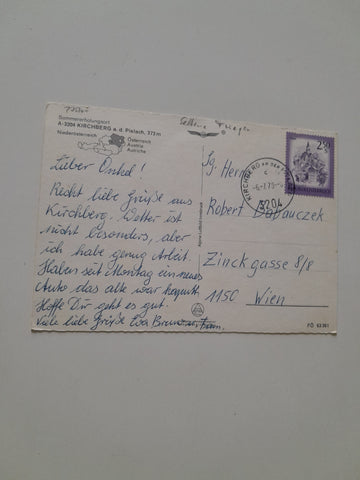 Sommererholungsort
A-3204 KIRCHBERG a. d. Pielach, 372 m
Niederösterreich
Österreich
Austria
Autriche
Lieber Onkel!
Recht liebe Grüße aus
Kirchberg. Wetter ist
nicht besonders, aber
ich habe genug Arbeit.
Haben seit Montag ein neues
Auto das alte war kaputt.
Hoffe Dir geht es gut.
Viele liebe Grüße Eva
KIRCHBERG AN DER
3204
Sg. Herrn
Robert
Zinckgasse 8/8
1150 Wien